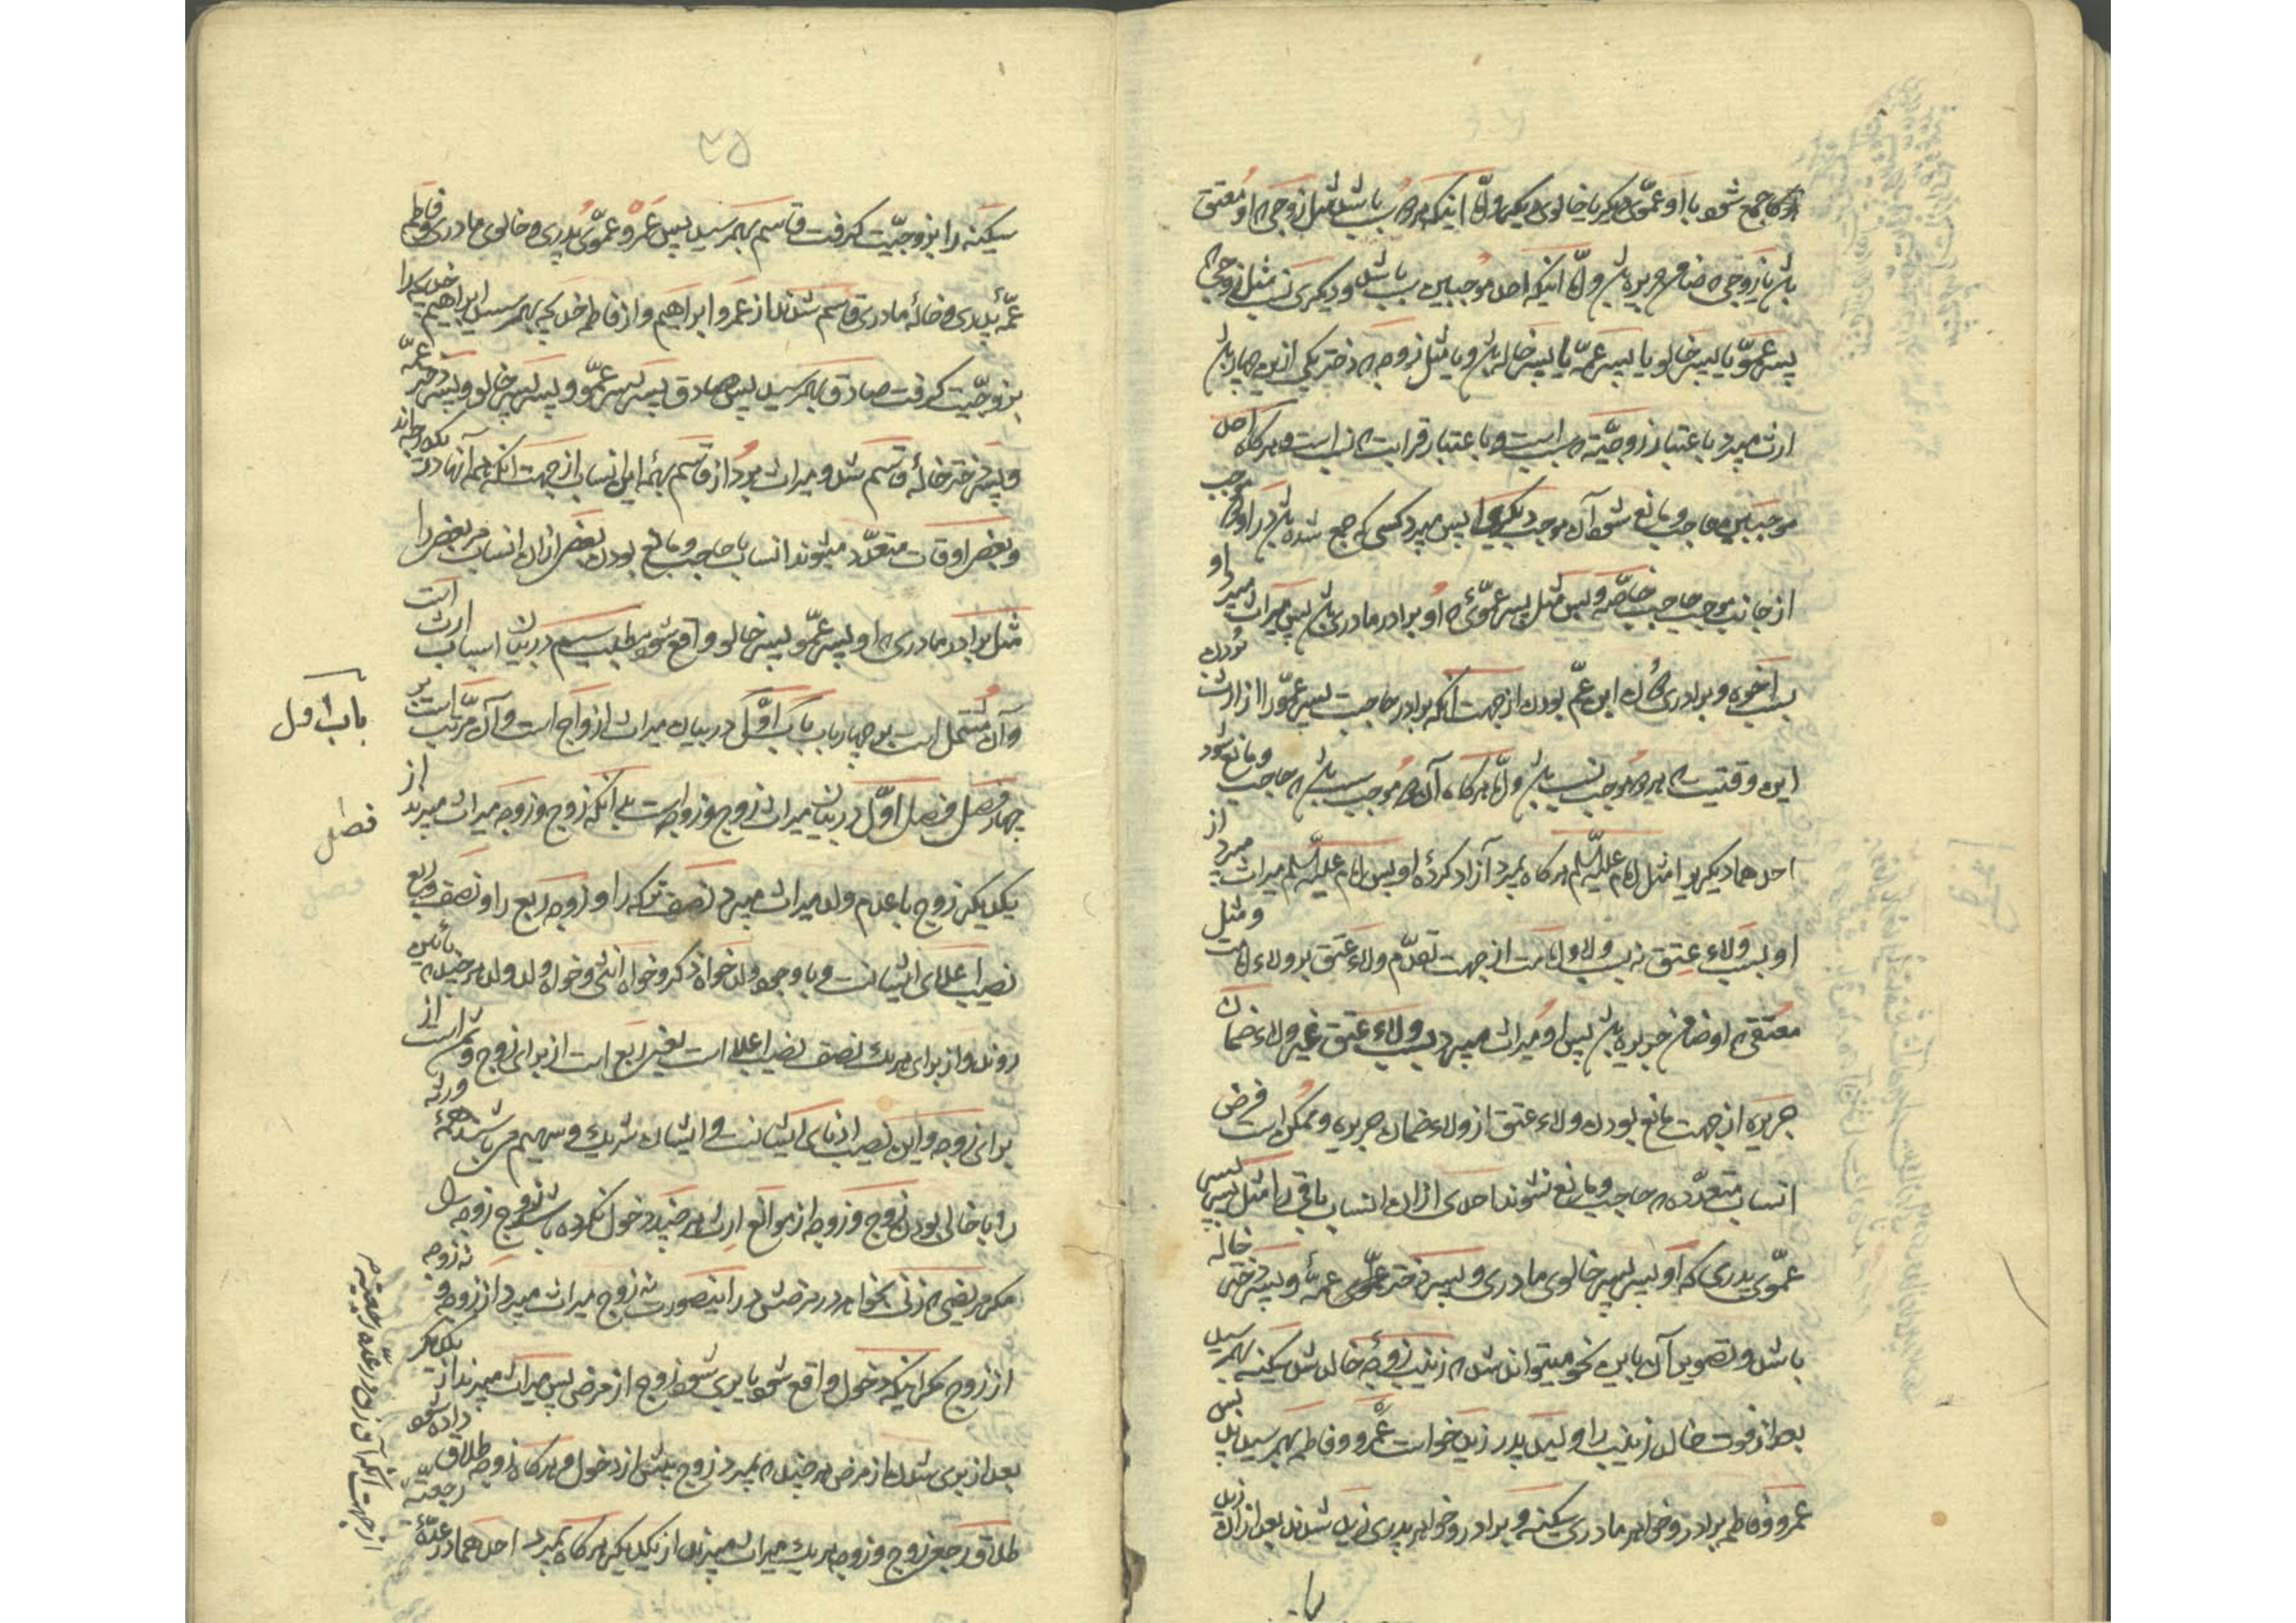 هرگاه جمع شود با او عموی دیگر یا خالوی دیگر و امّا اینکه هر دو سبب باشد مثل زوجی که او معتق
باشد یا زوجی که ضامن جریره باشد و امّا اینکه احد موجبین سبب باشد و دیگری نسب مثل زوجی که
پسر عمّو یا پسر خالو یا پسر عمّه یا پسر خاله باشد و یا مثل زوجه که دختر یکی از این چهار باشد
ارث میبرد باعتبار زوجیّت که سبب است و باعتبار قرابت که نسب است و هرگاه احد
موجبین حاجب و مانع شود آن موجب دیگر را پس میبرد کسی که جمع شده باشد در او دو موجب
از جانب موجب حاجب خاصّه و بس مثل پسر عموئی که او برادر مادری باشد پس میراث میبرد او
بسبب اخوه و برادری نه ابن عم بودن از جهت آنکه برادر حاجب پسر عمّو را از ارث بردن
این وقتیست که هر دو موجب نسب باشد و امّا هرگاه آن دو موجب سبب باشد که حاجب و مانع شود
احدهما دیگریرا مثل امام علیه السّلم هرگاه بمیرد آزاد کردهٔ او پس امام علیه السّلم میراث میبرد از
او بسبب ولاء عتق نه بسبب ولاء امامت از جهت تقدّم ولاء عتق بر ولاء امامت و مثل
معتقی که او ضامن جریره باشد پس او میراث میبرد بسبب ولاء عتق غیر ولاء ضمان
جریره از جهت مانع بودن ولاء عتق از ولاء ضمان جریره و ممکن است فرض
انساب متعدّده که حاجب و مانع نشوند احدی از ان انساب باقی را مثل پسر پسر
عمّوی پدری که او پسر پسر خالوی مادری و پسر دختر عمهٔ و پسر دختر خاله
باشد و تصویر آن باین نحو میتواند شد که زینب زوجهٔ خالد شد سکینه بهمرسید
بعد از فوت خالد زینب را ولید پدر زید خواست عمرو و فاطمه بهمرسید پس
عمرو و فاطمه برادر و خواهر مادری سکینه و برادر و خواهر پدری زید شدند بعد از ان زید
۲۵
سکینه را بزوجیّت گرفت قاسم بهمرسید پس عمرو عموی پدری و خالوی مادری و فاطمه
عمّهٔ پدری و خالهٔ مادری قاسم شدند از عمرو ابراهیم و از فاطمه خدیجه بهمرسید ابراهیم خدیجه را
بزوجیّت گرفت صادق بهمرسید پس صادق پسر پسر عمّو و پسر پسر خالو و پسر دختر عمّه
و پسر دختر خالهٔ قاسم شد و میراث میبرد از قاسم بهمهٔ این انساب از جهت آنکه همهٔ آنها در یک درجه‌اند
و بعضی اوقات متعدّد میشوند انساب با حاجب و مانع بودن بعضی از ان انساب مر بعضی را
مثل برادر مادری که او پسر عمّو و پسر خالو واقع شود مطلب سیم در بیان اسباب ارث است
و آن مشتمل است بر چهار باب باب اوّل در بیان میراث ازواج است و آن مرتّب است بر
چهار فصل فصل اوّل در بیان میراث زوج و زوجه است بدانکه زوج و زوجه میراث میبرند از
یکدیگر زوج با عدم ولد میراث میبرد نصف ترکه را و زوجه ربع را و نصف و ربع
نصیب اعلای ایشانست و با وجود ولد خواه ذکر و خواه انثی و خواه ولد ولد هر چند پائین
روند و از برای هر یک نصف نصیب اعلا است یعنی ربع است از برای زوج و ثمن است از
برای زوجه و این نصیب ادنای ایشانست و ایشان شریک و سهیم میباشند همهٔ ورثه
را با خالی بودن زوج و زوجه از موانع ارث هر چند دخول نکرده باشد زوج زوجه را
مگر مریضی که زنی بخواهد در مرضش در اینصورت نه زوج میراث میبرد از زوجه و نه زوجه
از زوج مگر اینکه دخول واقع شود یا بری شود زوج از مرض پس میراث میبرند از یکدیگر
بعد از بری شدن از مرض هر چند که بمیرد زوج پیش از دخول و هرگاه زوجه طلاق داده شود
طلاق رجعی زوج و زوجه هر یک میراث میبرند از یکدیگر هرگاه بمیرد احدهما در عدّهٔ رجعیّه
باب اول
فصل
از جهت آنکه آن زن در عدّهٔ رجعیّه